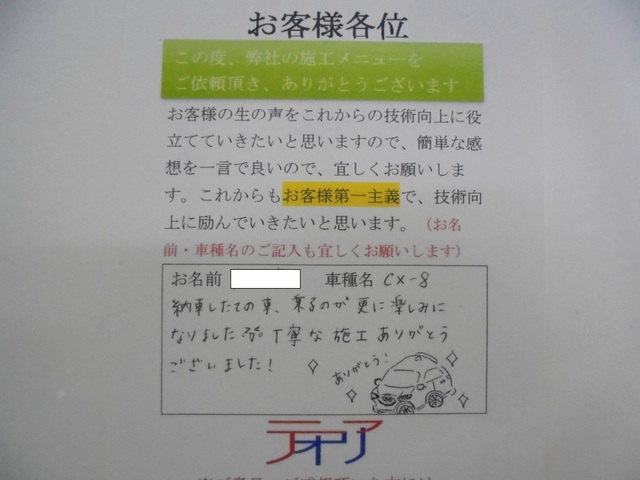 お客様各位
この度、弊社の施工メニューを
ご依頼頂き、ありがとうございます
お客様の生の声をこれからの技術向上に役
立てていきたいと思いますので、簡単な感
想を一言で良いので、宜しくお願いしま
す。これからもお客様第一主義で、技術向
上に励んでいきたいと思います。（お名
前・車種名のご記入も宜しくお願いします）
お名前 車種名 CX-8
納車したての車、乗るのが更に楽しみに
なりました。丁寧な施工ありがとう
ございました！
ありがとう！
テオリア